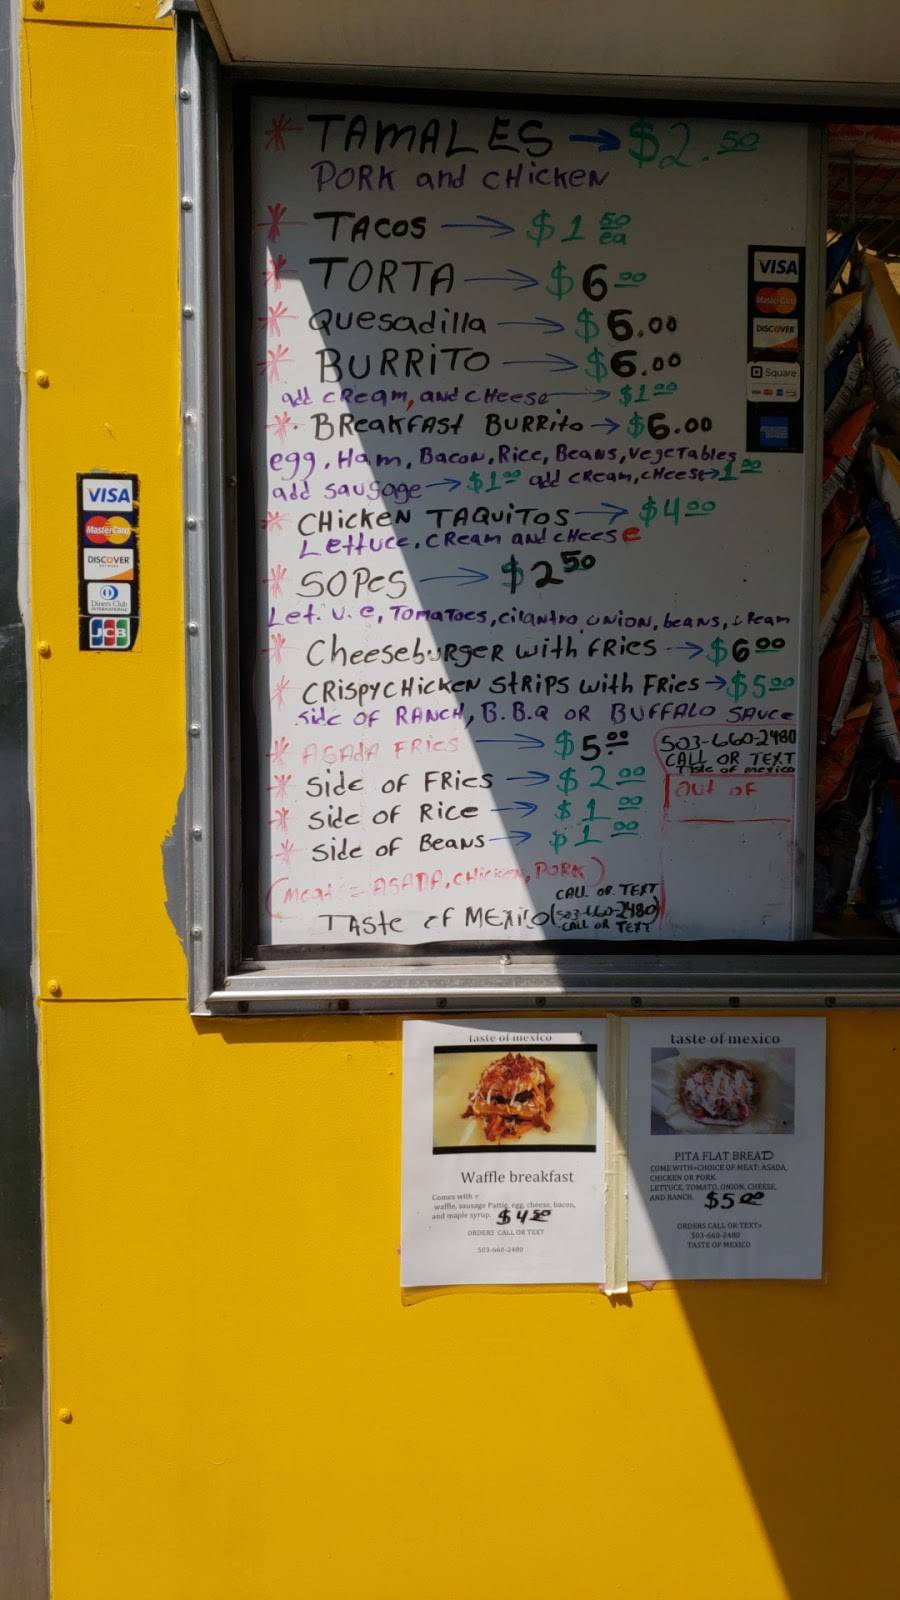 * TAMALES → $2.50
PORK and CHICKEN
* TACOS → $1 50 ea
* TORTA → $6 00
* Quesadilla → $6.00
* BURRITO → $6.00
add cream, and cheese → $1 00
* Breakfast Burrito → $6.00
egg, Ham, Bacon, Rice, Beans, Vegetables
add sausage → $1 00 add cream, cheese → 1 00
* CHicken TAQUITOS → $4 00
Lettuce, CReam and cHeese
* SOPES → $2 50
Let. u. e, Tomatoes, cilantro, onion, beans, cream
* Cheeseburger with FRies → $6 00
* CRispy CHicken Strips with FRies → $5 00
side OF RANCH, B.B.Q OR BUFFALO SAUCE
* ASADA FRies → $5.00
* Side of FRies → $2 00
* Side of Rice → $1 00
* Side of Beans → $1 00
(meat = ASADA, CHicken, PORK)
CALL OR TEXT
TAste of MEXICO (503-660-2480)
CALL OR TEXT
503-660-2480
CALL OR TEXT
Taste of mexico
OUT OF
VISA
MasterCard
DISCOVER
Square
VISA
MasterCard
DISCOVER
NETWORK
Diners Club
INTERNATIONAL
JCB
taste of mexico
Waffle breakfast
Comes with =
waffle, sausage Pattie, egg, cheese, bacon,
and maple syrup. $4 50
ORDERS CALL OR TEXT
503-660-2480
taste of mexico
PITA FLAT BREAD
COME WITH=CHOICE OF MEAT: ASADA,
CHICKEN OR PORK.
LETTUCE, TOMATO, ONION, CHEESE,
AND RANCH. $5 00
ORDERS CALL OR TEXT=
503-660-2480
TASTE OF MEXICO